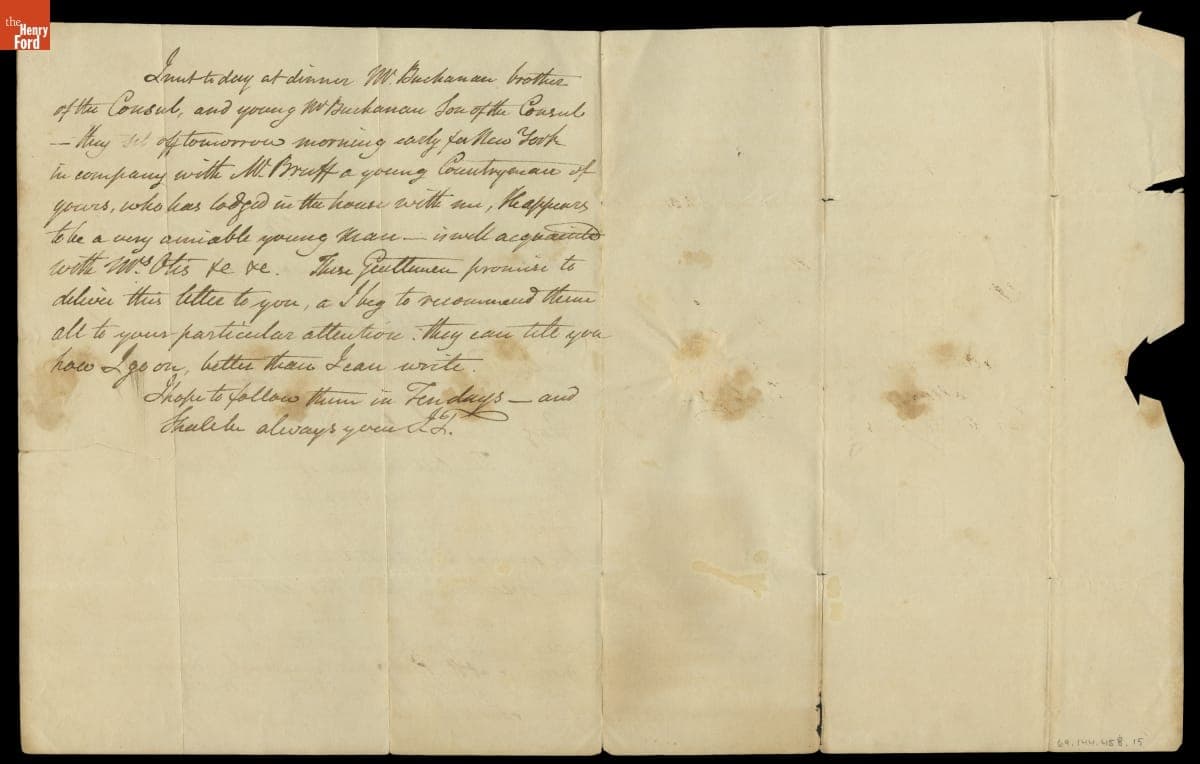 the
Henry
Ford
I met to day at dinner Mr. Buchanan brother
of the Consul, and young Mr Buchanan Son of the Consul
— they set off tomorrow morning early for New York
in company with Mr. Bruff a young Countryman of
yours, who has lodged in the house with me, He appears
to be a very amiable young man — is well acquainted
with Mrs. Otis &c &c. These Gentlemen promise to
deliver this letter to you, a I beg to recommend them
all to your particular attention. they can tell you
how I go on, better than I can write.
I hope to follow them in Ten days — and
Shall be always yours
69.144.458.15